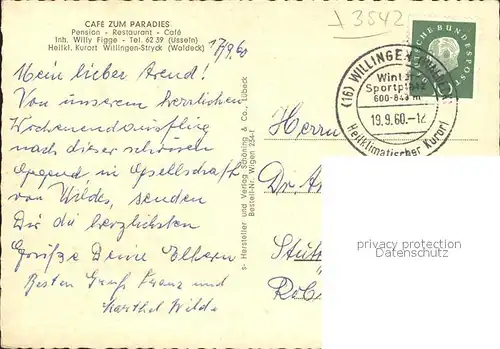 CAFÉ ZUM PARADIES
Pension - Restaurant - Café
Inh. Willy Figge - Tel. 6239 (Usseln)
Heilkl. Kurort Willingen-Stryck (Waldeck)
17/9.60
Mein lieber Arend!
Von unserem herrlichen
Wochenendausflug
nach dieser schönen
Gegend in Gesellschaft
von Wildes, senden
Dir die herzlichsten
Grüße Deine Eltern
Besten Gruß Franz und
Karthel Wilde
s- Hersteller und Verlag Schöning & Co., Lübeck
Bestell-Nr. Wigen 254-r
3542
DEUTSCHE BUNDESPOST
(16) WILLINGEN
Wint
Sportplatz
600-843 m
19.9.60.-12
Heilklimatischer Kurort
Herrn
Dr. Ar
privacy protection
Datenschutz